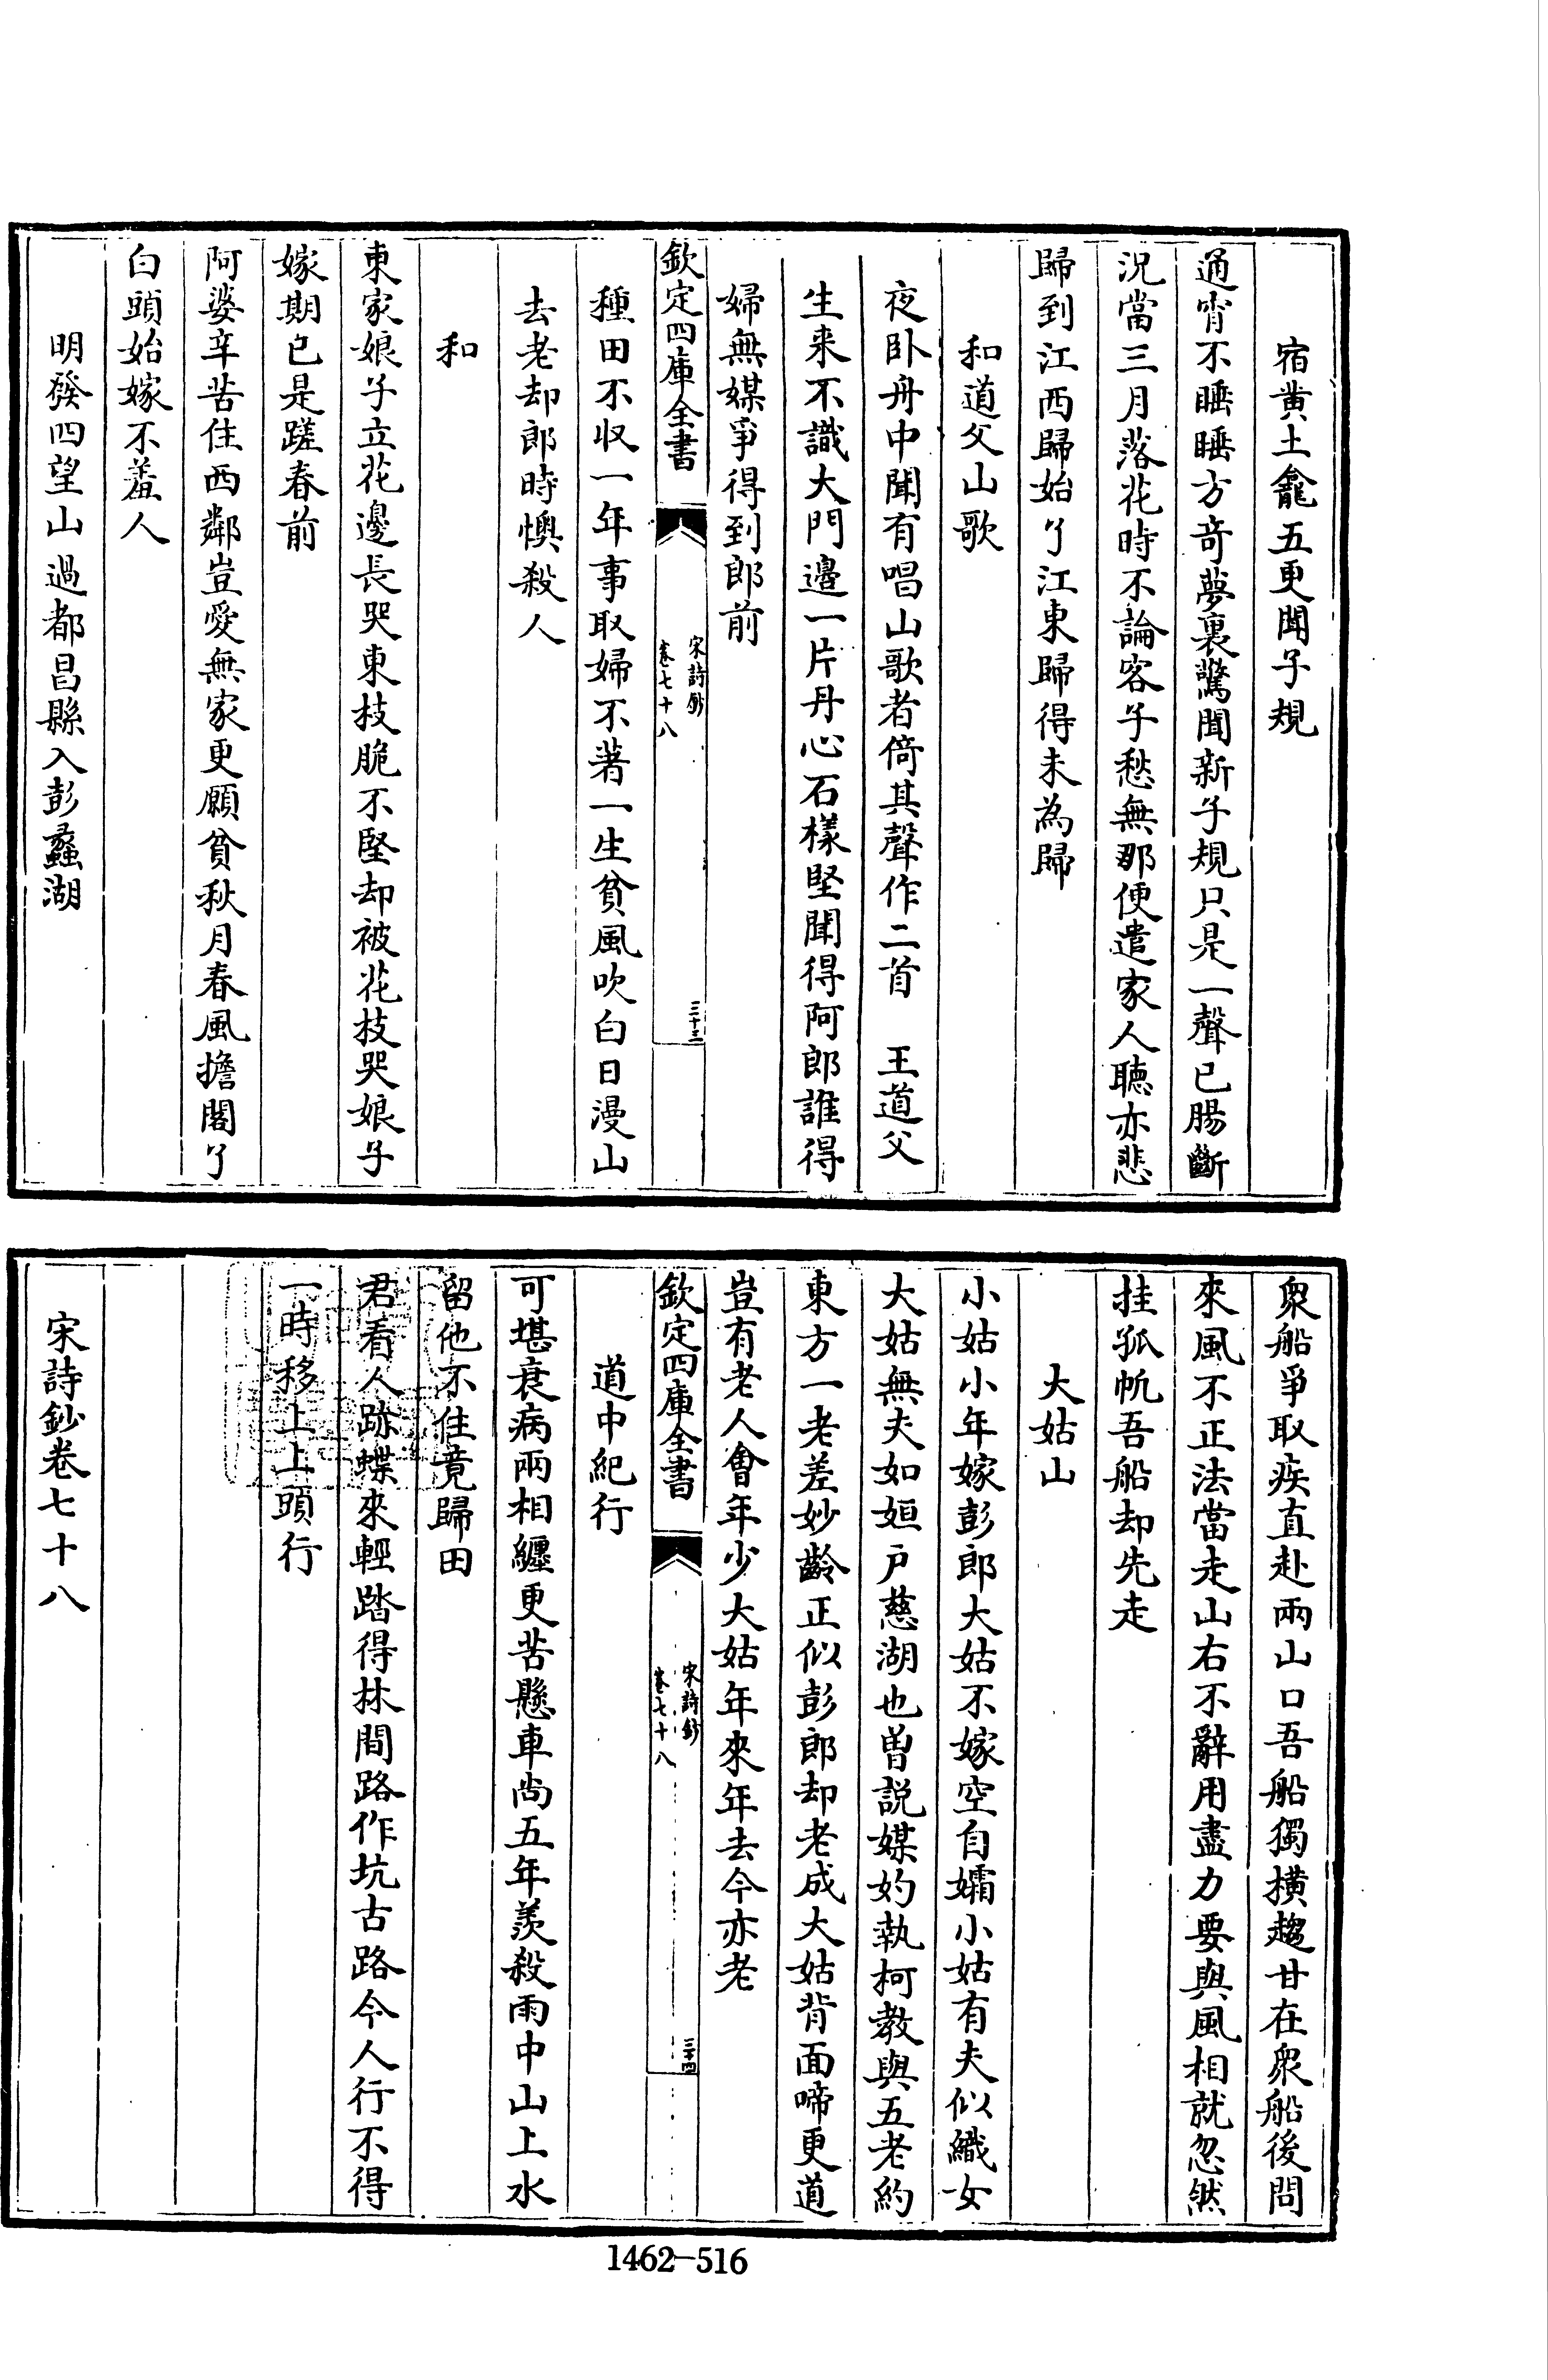 宿黄土龕五更聞子規
通宵不睡睡方奇夢裏驚聞新子規只是一聲已腸斷
況當三月落花時不論客子愁無那便遣家人聽亦悲
歸到江西歸始了江東歸得未為歸
和道父山歌
夜卧舟中聞有唱山歌者倚其聲作二首　王道父
生来不識大門邉一片丹心石様堅聞得阿郎誰得
婦無媒爭得到郎前
欽定四庫全書
宋詩鈔
卷七十八
三十三
種田不收一年事取婦不著一生貧風吹白日漫山
去老却郎時懊殺人
和
東家娘子立花邊長哭東枝脆不堅却被花枝哭娘子
嫁期已是蹉春前
阿婆辛苦住西鄰豈愛無家更願貧秋月春風擔閣了
白頭始嫁不羞人
明發四望山過都昌縣入彭蠡湖
衆船爭取疾直赴兩山口吾船獨横趨甘在衆船後問
來風不正法當走山右不辭用盡力要與風相就忽然
挂孤帆吾船却先走
大姑山
小姑小年嫁彭郎大姑不嫁空自孀小姑有夫似織女
大姑無夫如姮户慈湖也曽説媒妁執柯教與五老約
東方一老差妙齡正似彭郎却老成大姑背面啼更道
豈有老人會年少大姑年來年去今亦老
欽定四庫全書
宋詩鈔
卷七十八
三十四
道中紀行
可堪衰病兩相纏更苦懸車尚五年羨殺雨中山上水
留他不住竟歸田
君看人跡蝶來輕踏得林間路作坑古路今人行不得
一時移上上頭行
宋詩鈔卷七十八
1462-516